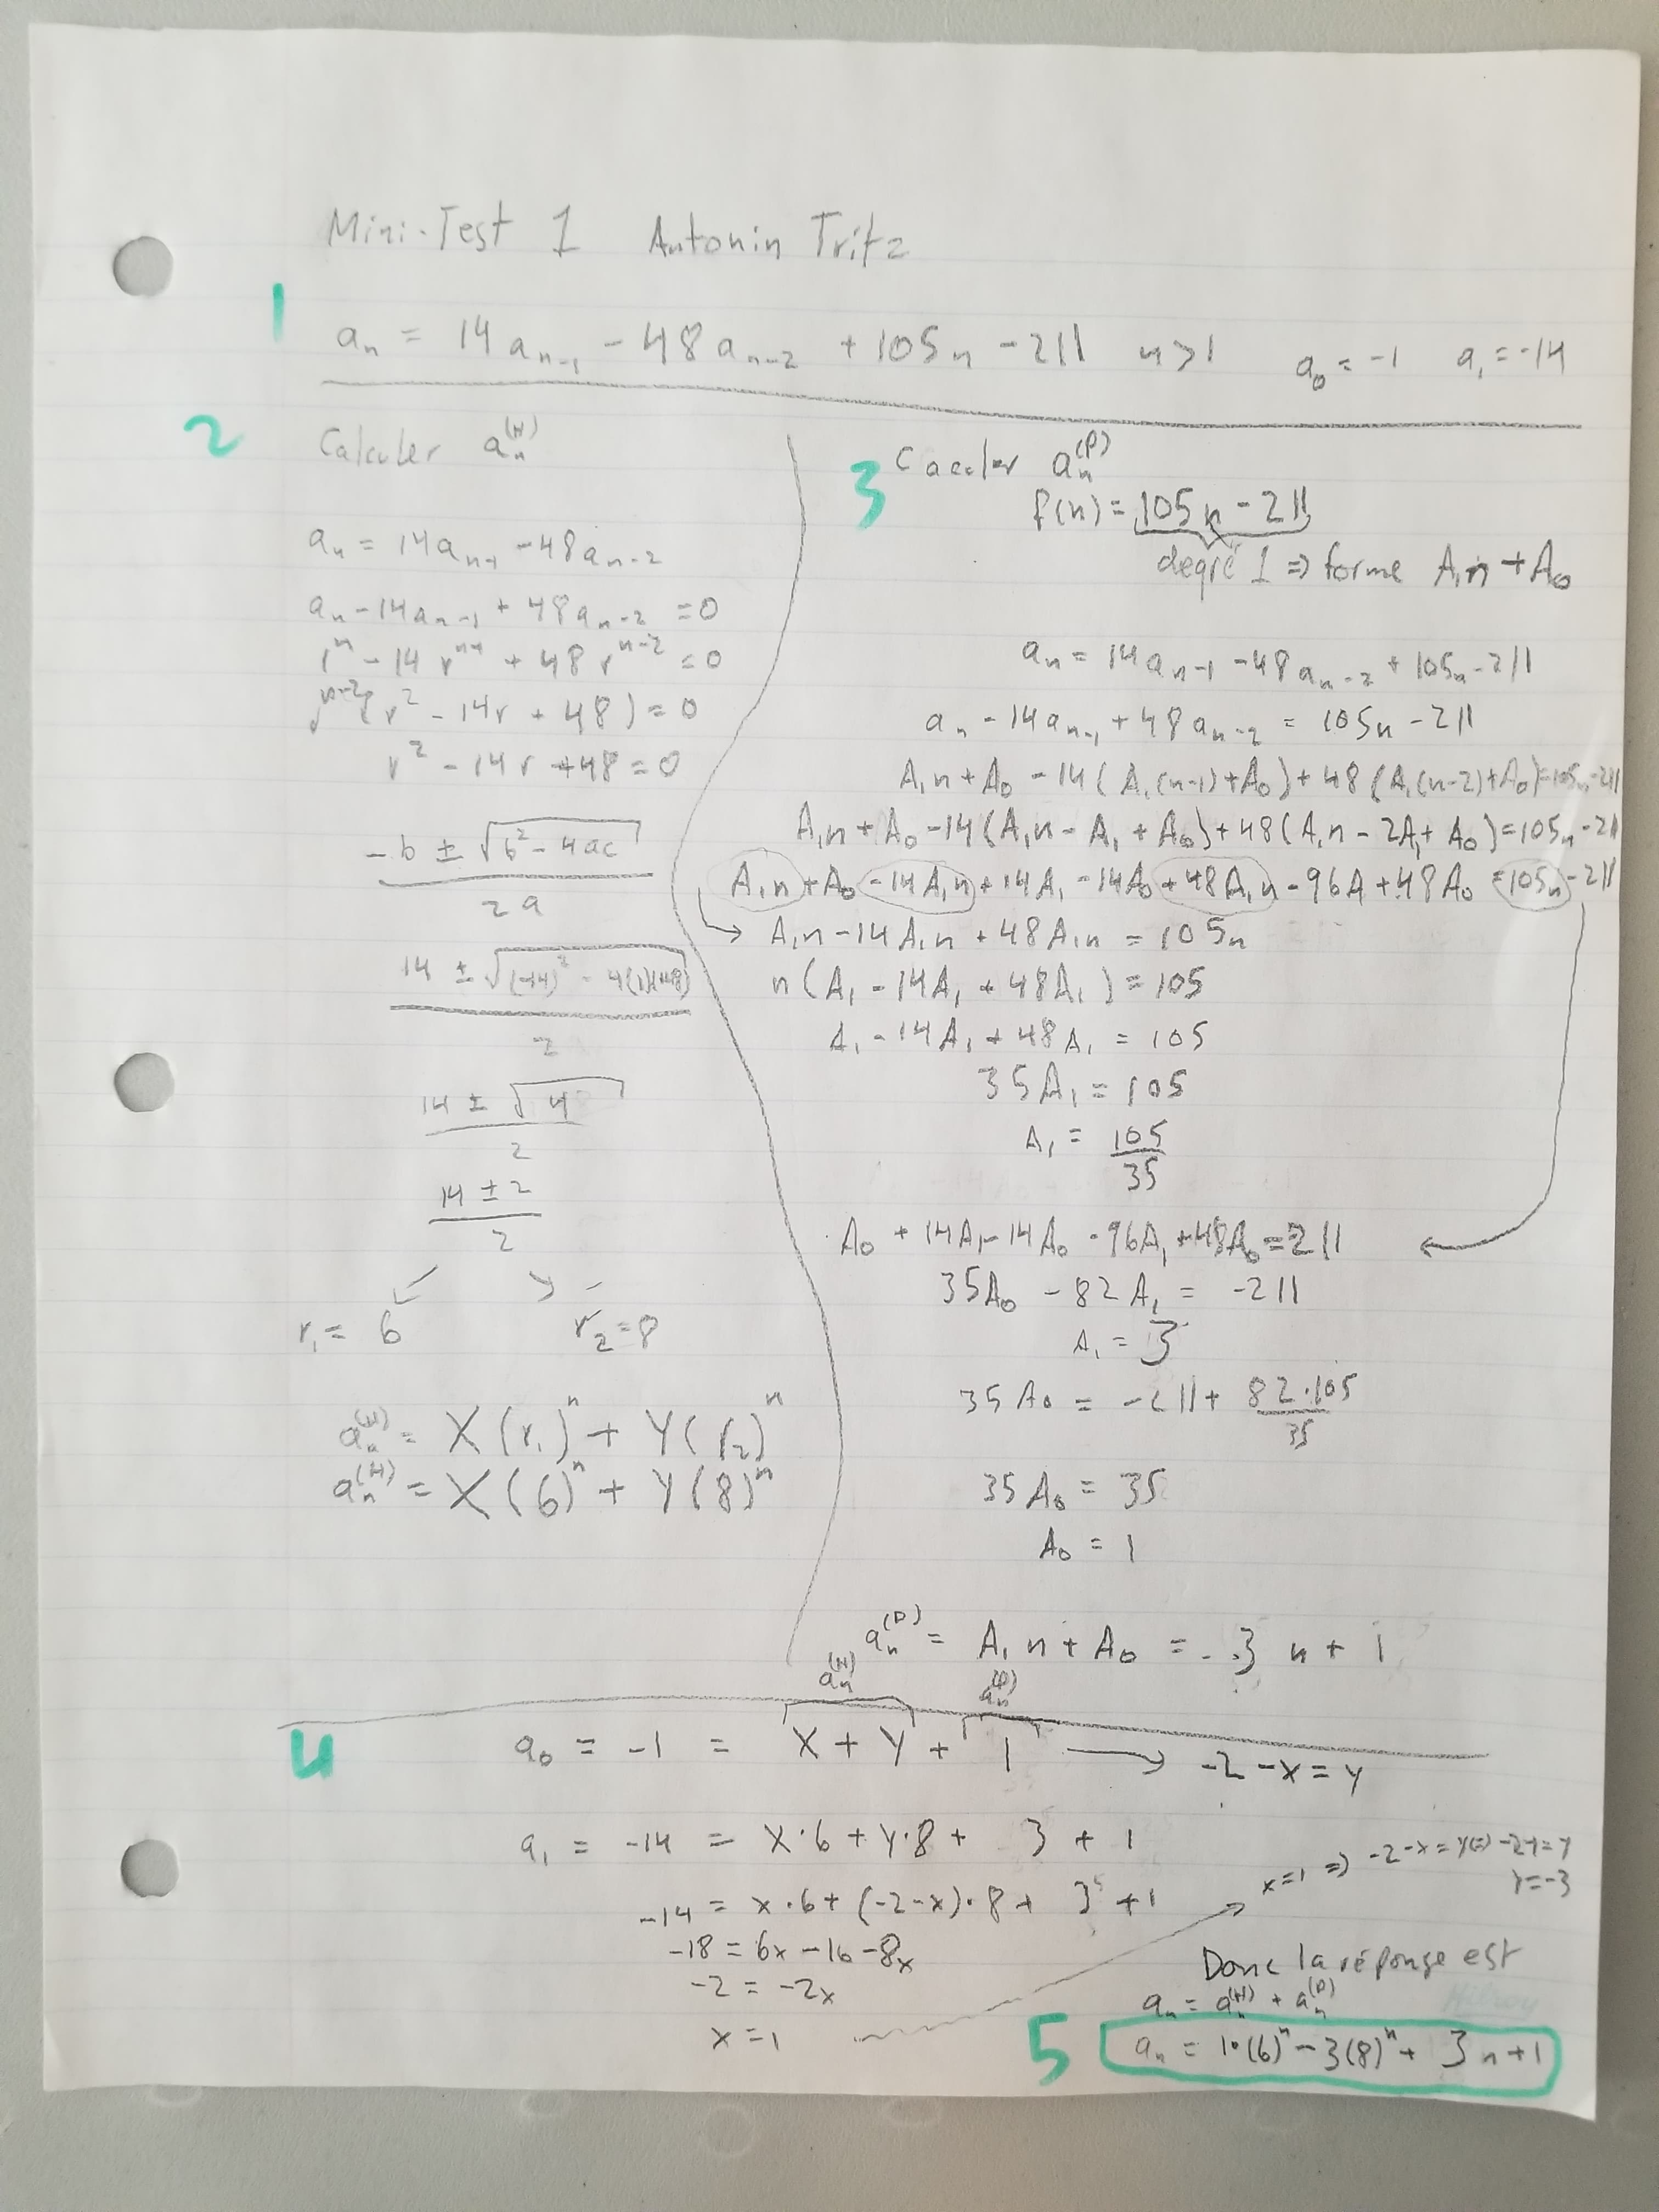 Mini-Test 1 Antonin Tritz
1
aₙ = 14aₙ₋₁ - 48aₙ₋₂ + 105n - 211 n>1 a₀ = -1 a₁ = -14
2
Calculer aₙ^(H)
aₙ = 14aₙ₋₁ - 48aₙ₋₂
aₙ - 14aₙ₋₁ + 48aₙ₋₂ = 0
rⁿ - 14rⁿ⁻¹ + 48rⁿ⁻² = 0
rⁿ⁻²(r² - 14r + 48) = 0
r² - 14r + 48 = 0
(-b ± √(b² - 4ac))/2a
(14 ± √((-14)² - 4(1)(48)))/2
(14 ± √4)/2
(14 ± 2)/2
r₁ = 6 r₂ = 8
aₙ^(H) = X(r₁)ⁿ + Y(r₂)ⁿ
aₙ^(H) = X(6)ⁿ + Y(8)ⁿ
3
aₙ^(P)
f(n) = 105n - 211
degré 1 => forme A₁n + A₀
aₙ = 14aₙ₋₁ - 48aₙ₋₂ + 105n - 211
aₙ - 14aₙ₋₁ + 48aₙ₋₂ = 105n - 211
A₁n + A₀ - 14(A₁(n-1) + A₀) + 48(A₁(n-2) + A₀) = 105n - 211
A₁n + A₀ - 14(A₁n - A₁ + A₀) + 48(A₁n - 2A₁ + A₀) = 105n - 21
A₁n + A₀ - 14A₁n + 14A₁ - 14A₀ + 48A₁n - 96A + 48A₀ = 105n - 211
→ A₁n - 14A₁n + 48A₁n = 105n
n(A₁ - 14A₁ + 48A₁) = 105
A₁ - 14A₁ + 48A₁ = 105
35A₁ = 105
A₁ = 105/35
A₀ + 14A₁ - 14A₀ - 96A₁ + 48A₀ = 211
35A₀ - 82A₁ = -211
A₁ = 3
35A₀ = -211 + 82·105/35
35A₀ = 35
A₀ = 1
aₙ^(P) = A₁n + A₀ = 3n + 1
4
aₙ^(H) aₙ^(P)
a₀ = -1 = X + Y + 1 → -2 - X = Y
a₁ = -14 = X·6 + Y·8 + 3 + 1
-14 = x·6 + (-2-x)·8 + 3 + 1
-18 = 6x - 16 - 8x
-2 = -2x
x = 1
x=1 => -2-x=Y(=) -2-1=Y
Y=-3
Donc la réponse est
aₙ = aₙ^(H) + aₙ^(P)
Hilroy
5
aₙ = 1·(6)ⁿ - 3(8)ⁿ + 3n + 1